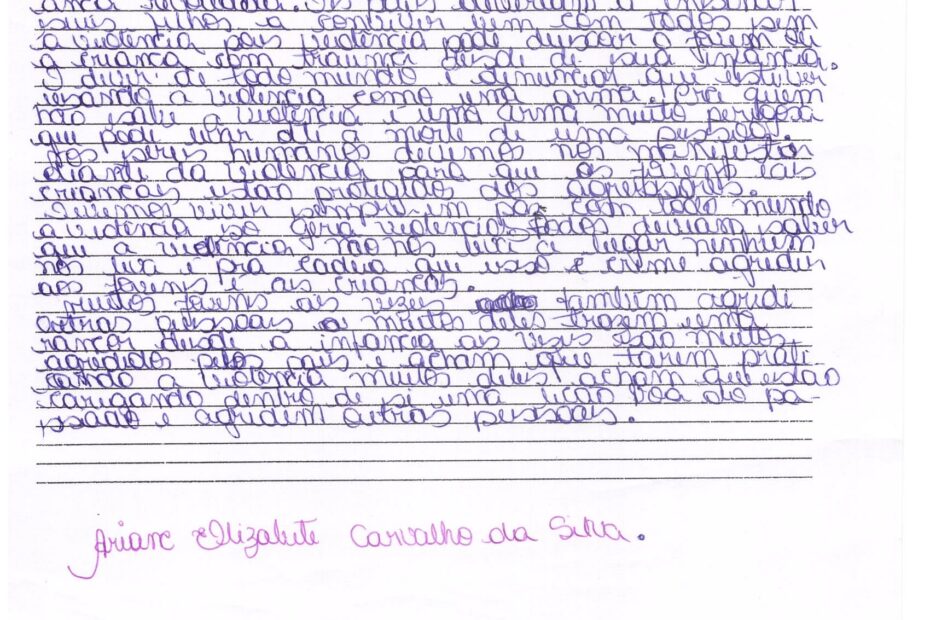 seus filhos a conviver bem com todos sem
a violencia pois violência pode deixar o jovem ou
a criança com trauma desde de sua infância.
O dever de todo mundo é denunciar que estiver
usando a violencia como uma arma. Pra quem
não sabe a violência é uma arma muito perigosa
que pode levar até a morte de uma pessoa.
dos seres humanos devemos nos manifestar
diante da violencia para que os jovens e as
crianças estão protegidos dos agressores.
Devemos viver sempre em paz com todo mundo
a violencia so gera violencia todos deviam saber
que a violência não nos leva a lugar nenhum
nos leva é pra cadeia que isso é crime agredir
aos jovens e as crianças.
muitos jovens as vezes também agridi
outras pessoas a muitos deles trazem uma
rancor desde a infancia as vezes são muitos
agredidos pelos pais e acham que farem prati
cando a violencia muitos deles acham que estão
caregando dentro de si uma lição boa do pa-
ssado e agridem outras pessoas.
Ariane Elizabete Carvalho da Silva.